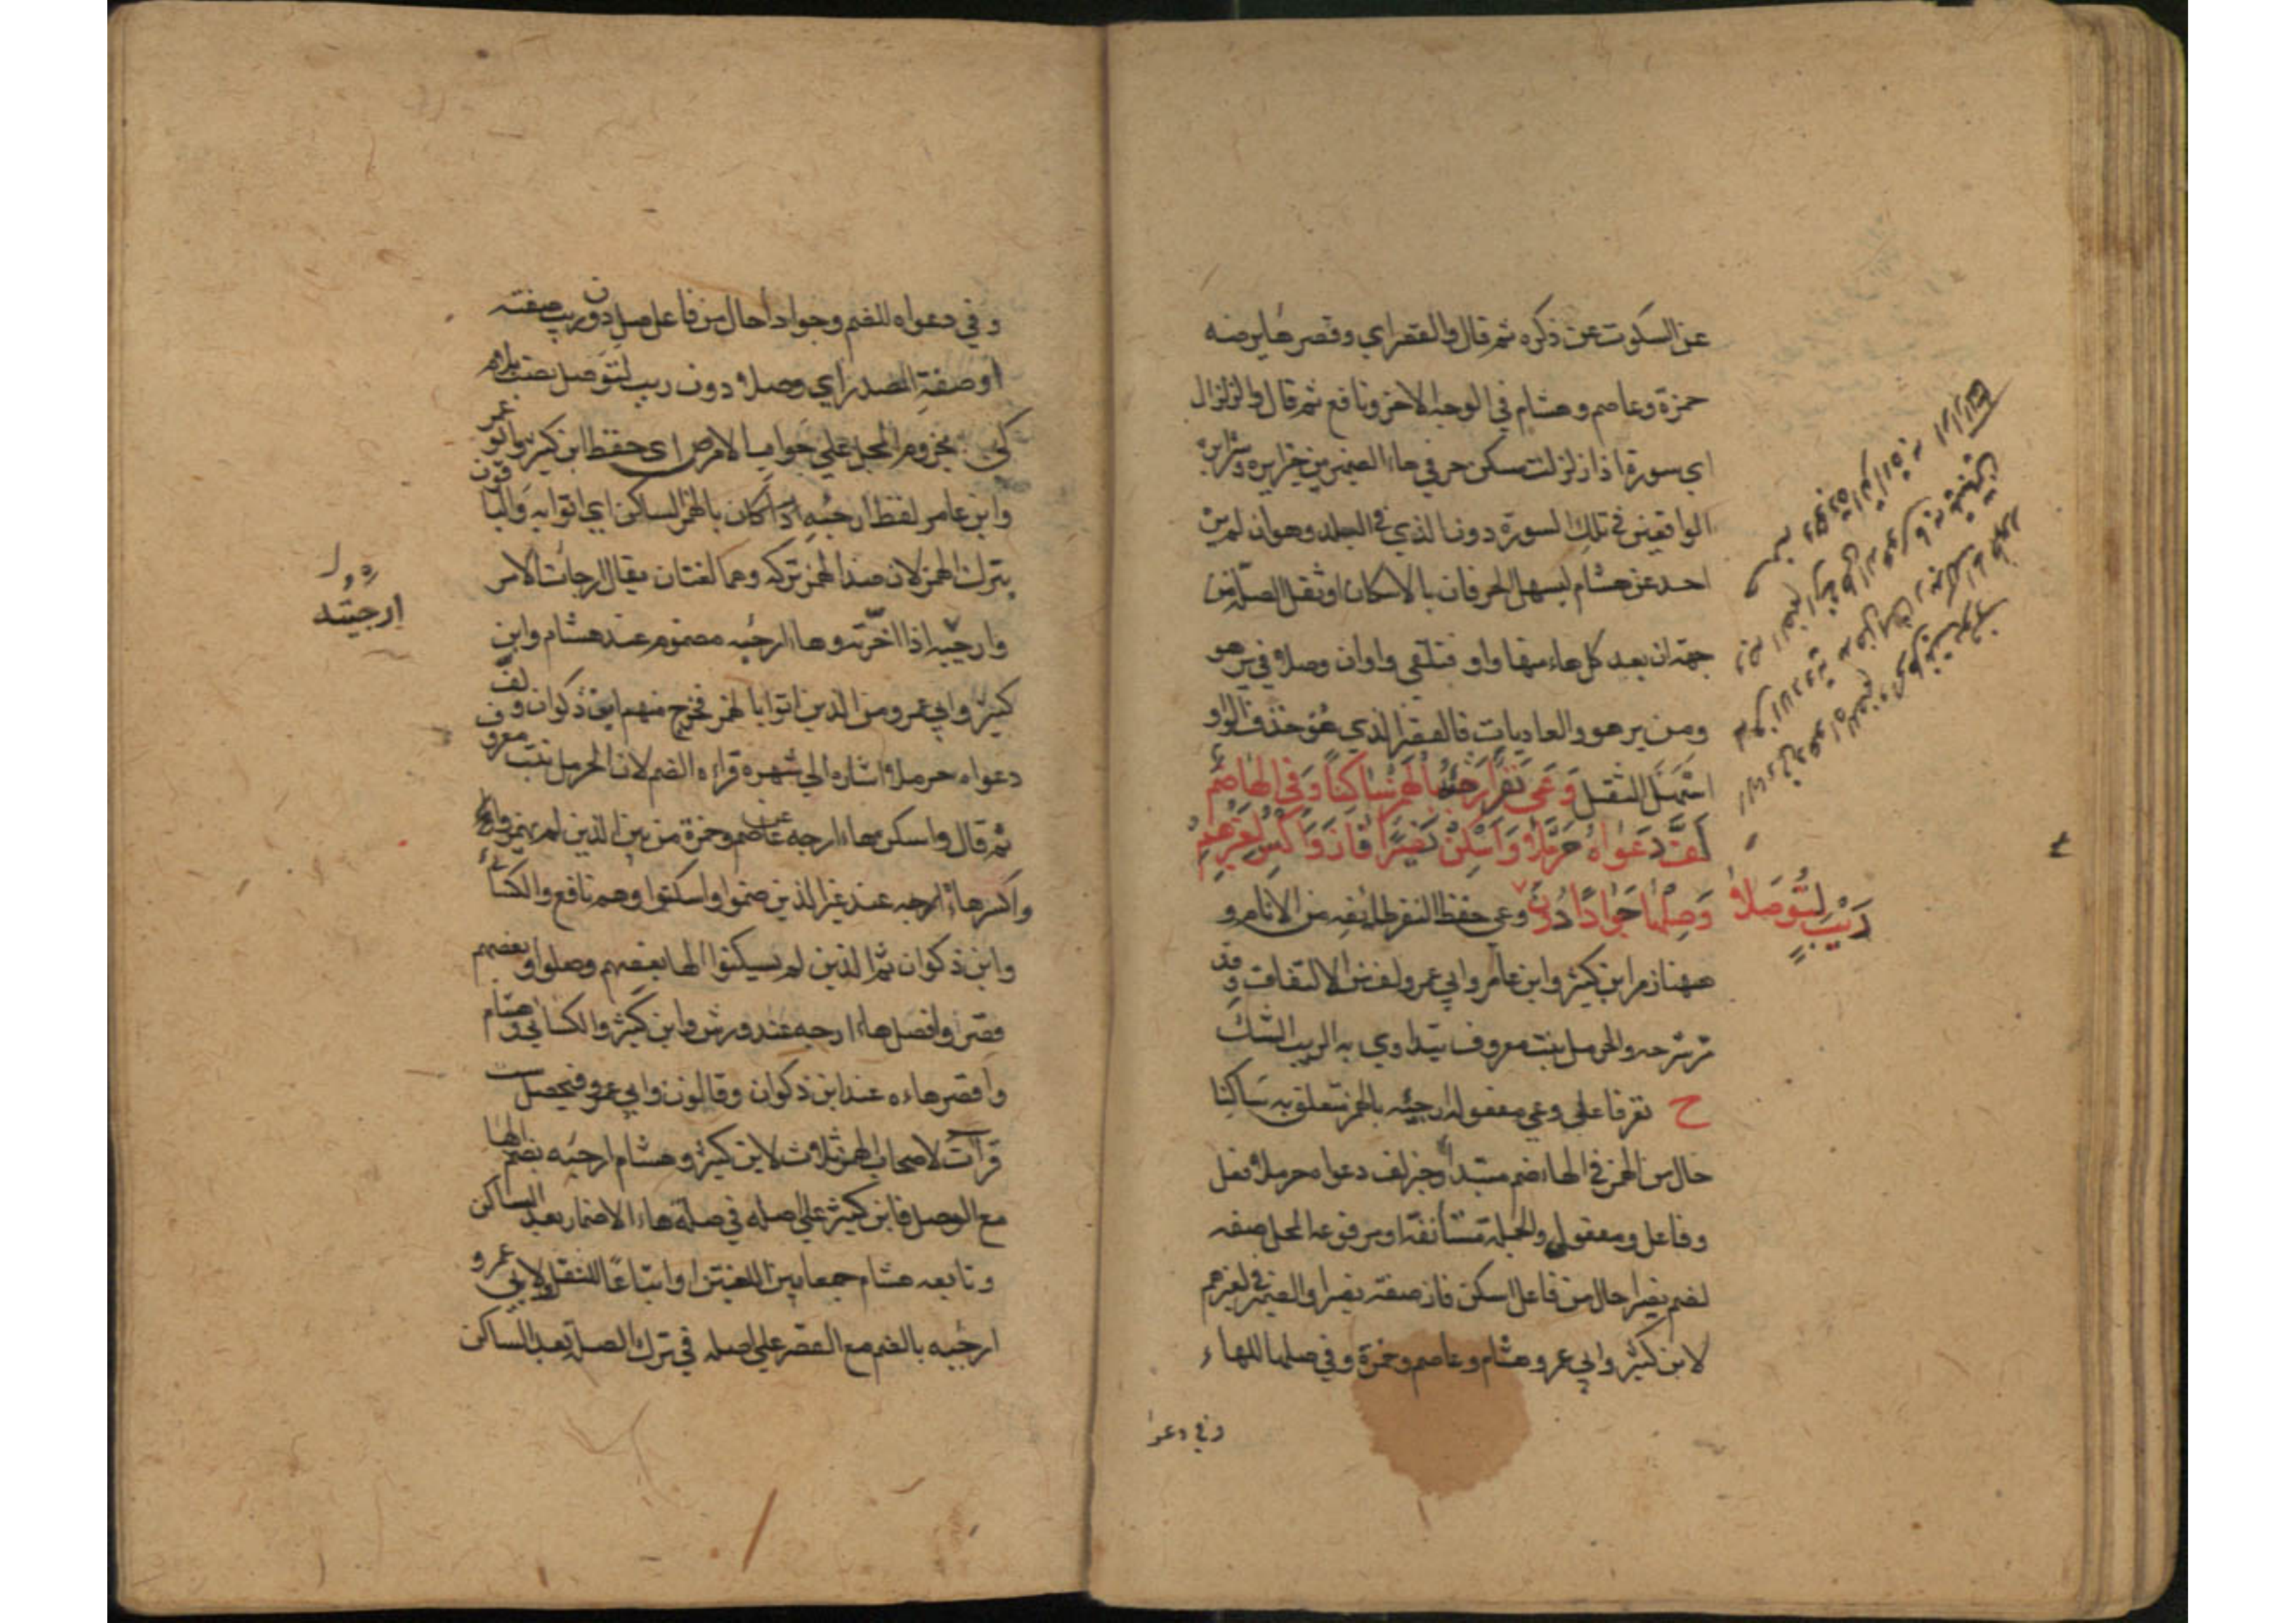 عن السكوت عن ذكره ثم قال والقصر اي وقصر هايرضه
حمزة وعاصم وهشام في الوجه الاخر ونافع ثم قال والزلزال
اي سورة اذا زلزلت سكن حرفي هاء الضمير من خيرا يره وشرا يره
الواقعين في تلك السورة دون الذي في البلد وهو ان لم يره
احد عن هشام ليسهل الحرفان بالاسكان او ثقل الصلة من
جهة ان بعد كل هاء منها واو فتلتقي واوان وصلا في يره هو
ومن يره هو والعاديات فالقصر الذي هو حذف الواو
اسهل الثقل وَعَى نَفَرٌ اَرْجِئْهُ بالهَمْزِ سَاكِنًا وَفي الهَا ضَمّ
لَفَّ دَعْوَاهُ حَرْمَلَا وَاَسْكِنْ نَصِيرًا فَازَ وَاكْسِرْ لِغَيْرِهِمْ
وَصِلْهَا جَوَادًا دُونَ رَيْبٍ لِتُوصَلَا
وعى حفظ النفر طايفه من الانام و
ههنا زمر ابن كثير وابن عامر وابي عمرو لف من الالتفاف وقد
مر شرحه والحرمل نبت معروف يتداوي به الريب الشك
ح نفر فاعل وعي مفعوله ارجئه بالهمز متعلق به ساكنا
حال من الهمز في الهاء ضم مبتدا وخبر لف دعواه حرملا فعل
وفاعل ومفعول والجملة مستانفة او مرفوعه المحل صفه
لضم نصيرا حال من فاعل اسكن فاز صفة نصيرا والضمير في لغيرهم
لابن كثير وابي عمرو وهشام وعاصم وحمزة وفي صلها للهاء
وفي دعوا
وفي دعواه للضم وجوادا حال من فاعل صل دون ريب صفته
او صفة المصدر اي وصلا دون ريب لتوصل نصب بلام
كي مجزوم المحل علي جواب الامر ص اى حفظ ابن كثير وابو عمرو
وابن عامر لفظ ارجئه اذا كان بالهمز الساكن اي اتوا به والباقون
بترك الهمز لان ضد الهمز تركه وهما لغتان يقال ارجات الامر
وارجيته اذا اخرته وهاء ارجئه مضموم عند هشام وابن
كثير وابي عمرو من الذين اتوا بالهمز فخرج منهم ابن ذكوان ولف
دعواه حرملا اشاره الي شهرة قراءة الضم لان الحرمل نبت معروف
ثم قال واسكن هاء ارجه عن عاصم وحمزة من بين الذين لم يهمزوا
واكسر هاء ارجه عند غير الذين ضموا واسكنوا وهم نافع والكسائي
وابن ذكوان ثم الذين لم يسكنوا الها بعضهم وصلوا وبعضهم
قصروا فصل هاء ارجه عند ورش وابن كثير والكسائي وهشام
واقصر هاءه عند ابن ذكوان وقالون وابي عمرو فيحصل ست
قراآت لاصحاب الهمز ثلاث لابن كثير وهشام ارجئه بضم الها
مع الوصل فابن كثير علي اصله في صلة هاء الاضمار بعد الساكن
وتابعه هشام جمعا بين اللغتين او اتباعا للنقل ولابي عمرو
ارجئه بالضم مع القصر علي اصله في ترك الصلة بعد الساكن
ارجيته